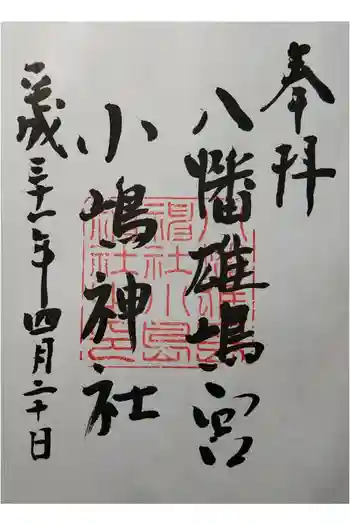 奉拝
八幡雄嶋宮
小嶋神社
平成三十一年四月二十日